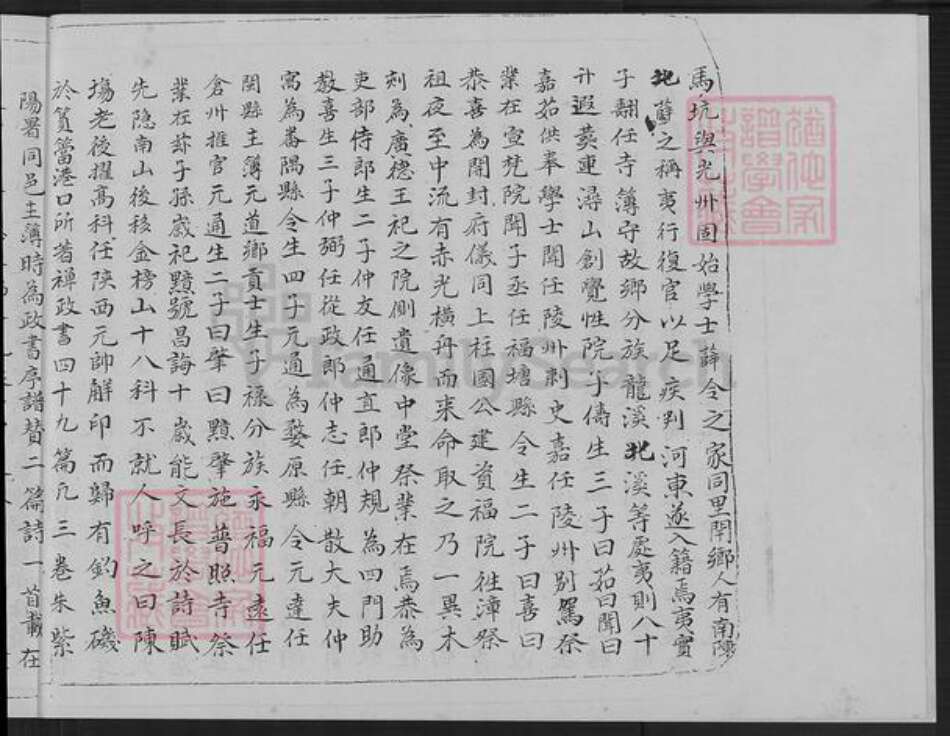 馬坑與光州固始學士薛令之家同里閈鄉人有南陳
北薛之稱夷行復官以足疾判河東遂入籍焉夷實
子翺任寺簿守故鄉分族龍溪北溪等處夷則八十
升遐葬連潯山創覺性院子儔生三子曰茹曰聞曰
嘉茹供奉學士聞任陵州刺史嘉任陵州別駕祭
業在宣梵院聞子丞任福塘縣令生二子曰喜曰
恭喜為開封府儀同上柱國公建資福院徃漳祭
祖夜至中流有赤光橫舟而來命取之乃一異木
刻為廣德王祀之院側遺像中堂祭業在焉恭為
吏部侍郎生二子仲友任通直郎仲規為四門助
教喜生三子仲弼任從政郎仲志任朝散大夫仲
寓為番隅縣令生四子元通為婺原縣令元達任
閩縣主簿元道鄉貢士生子祿分族永福元遠任
倉州推官元通生二子曰肇曰黯肇施普照寺祭
業在薛子孫歲祀黯號昌誨十歲能文長於詩賦
先隐南山後移金榜山十八科不就人呼之曰陳
塲老後擢高科任陝西元帥觧印而歸有釣魚磯
於篔簹港口所著禪政書四十九篇凢三卷朱紫
陽署同邑主薄時為政書序譜賛二篇詩一首載在